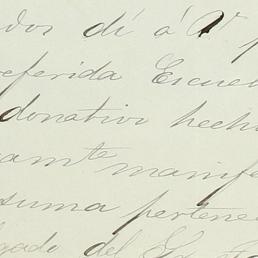 dos dí á V.
referida Escuel
donativo hech
camte manife
suma pertene
gado del